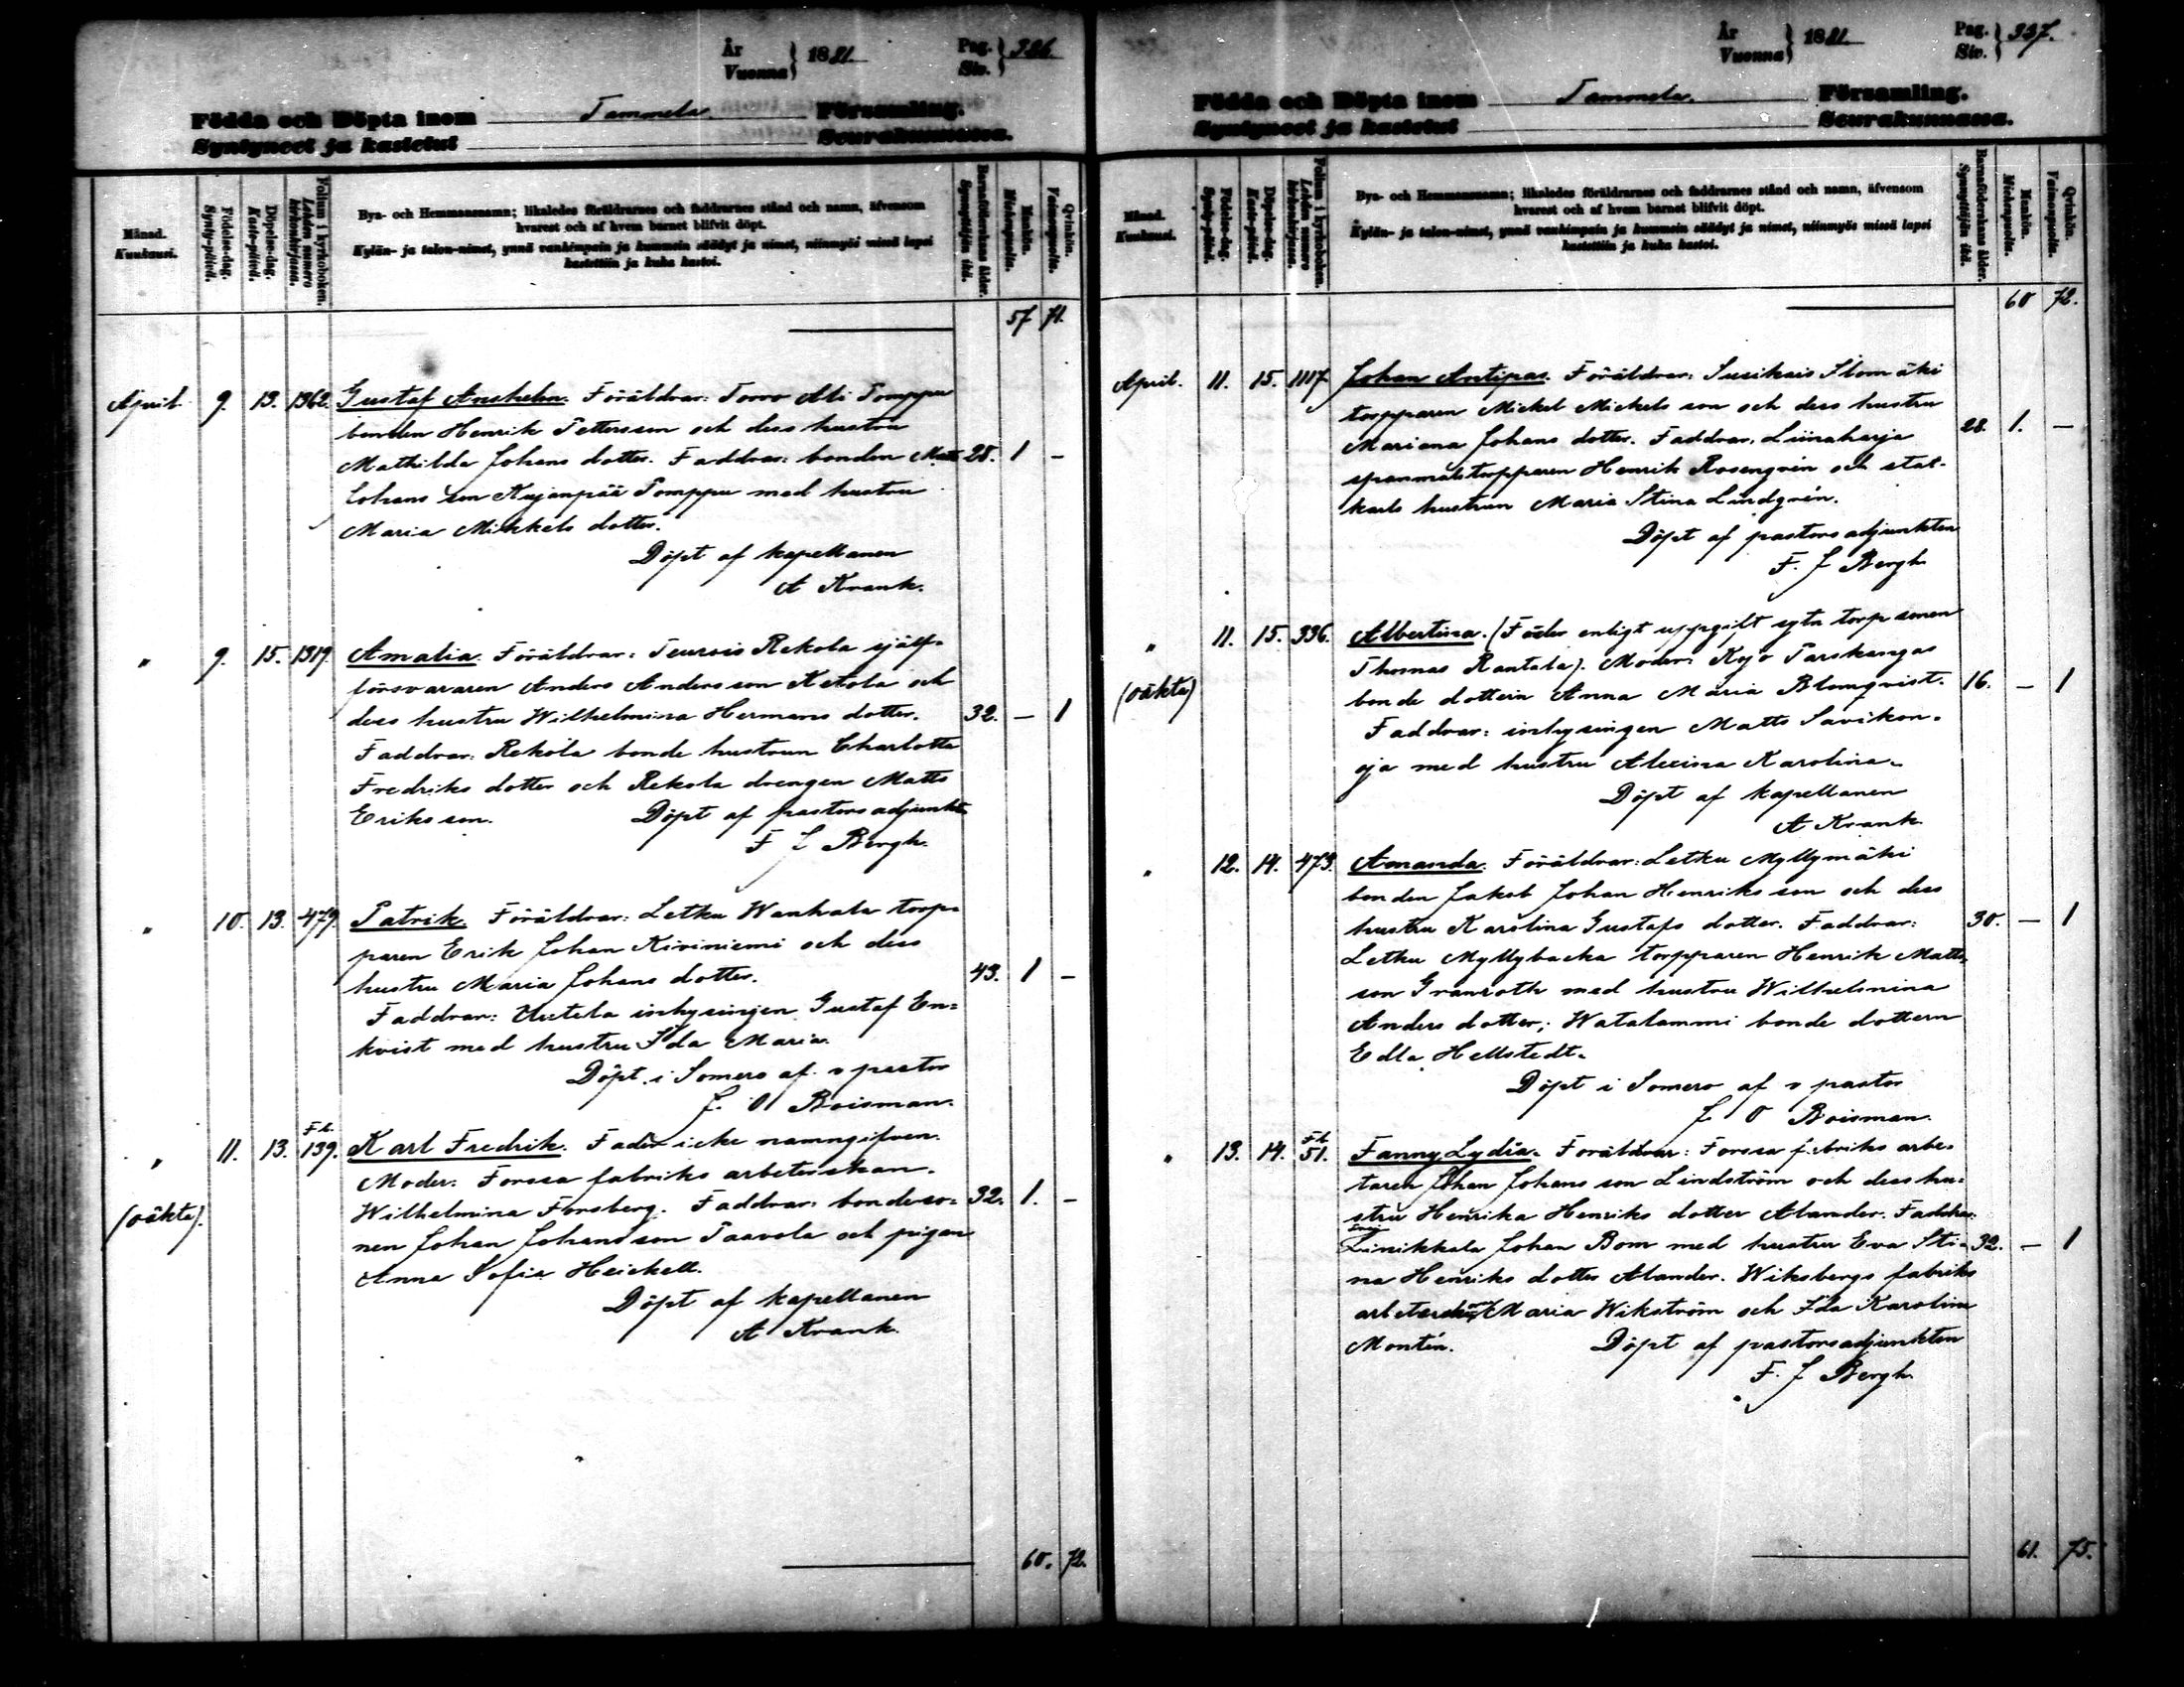 År
Vuonna } 1881
Pag.
Siv. } 336
Födda och Döpta inom Tammela Församling.
Syntyneet ja kastetut Seurakunnassa.
Månad.
Kuukausi.
Födelse-dag.
Synty-päivä.
Döpelse-dag.
Kaste-päivä.
Folium i kyrkoboken.
Lehden numero
kirkonkirjassa.
Bya- och Hemmansnamn; likaledes föräldrarnes och faddrarnes stånd och namn, äfvensom
hvarest och af hvem barnet blifvit döpt.
Kylän- ja talon-nimet, ynnä vanhimpain ja kummein säädyt ja nimet, niinmyös missä lapsi
kastettiin ja kuka kastoi.
Barnaföderskans ålder.
Synnyttäjän ikä.
Mankön.
Miehenpuolta.
Qvinkön.
Vaimonpuolta.
57 71.
April 9. 13. 1362. Gustaf Anshelm. Föräldrar: Torro Ali Tomppu
bonden Henrik Pettersson och dess hustru
Mathilda Johans dotter. Faddrar: bonden Matts 28. 1 –
Johans son Kujanpää Tomppu med hustru
Maria Mikkels dotter.
Döpt af kapellanen
A Krank.
" 9. 15. 1319. Amalia. Föräldrar: Teurois Rekola sjelf-
försvararen Anders Andersson Ketola och
dess hustru Wilhelmina Hermans dotter. 32. – 1
Faddrar: Rekola bonde hustrun Charlotta
Fredriks dotter och Rekola drengen Matts
Eriksson. Döpt af pastorsadjunkten
F J Bergh.
" 10. 13. 479. Patrik. Föräldrar: Letku Wanhala torp-
paren Erik Johan Kiviniemi och dess
hustru Maria Johans dotter. 43. 1 –
Faddrar: inhysingen Gustaf En-
kvist med hustru Ida Maria.
Döpt i Somero af v pastor
J. O Boisman.
" 11. 13. Fb. 139. Karl Fredrik. Fader icke namngifven.
Moder: Forssa fabriks arbeterskan
(oäkta). Wilhelmina Forsberg. Faddrar: bondeso- 32. 1. –
nen Johan Johansson Paavola och pigan
Anna Sofia Heickell.
Döpt af kapellanen
A Krank.
60. 72.
År
Vuonna } 1881
Pag.
Siv. } 337.
Födda och Döpta inom Tammela. Församling.
Syntyneet ja kastetut Seurakunnassa.
Månad.
Kuukausi.
Födelse-dag.
Synty-päivä.
Döpelse-dag.
Kaste-päivä.
Folium i kyrkoboken.
Lehden numero
kirkonkirjassa.
Bya- och Hemmansnamn; likaledes föräldrarnes och faddrarnes stånd och namn, äfvensom
hvarest och af hvem barnet blifvit döpt.
Kylän- ja talon-nimet, ynnä vanhimpain ja kummein säädyt ja nimet, niinmyös missä lapsi
kastettiin ja kuka kastoi.
Barnaföderskans ålder.
Synnyttäjän ikä.
Mankön.
Miehenpuolta.
Qvinkön.
Vaimonpuolta.
60 72.
April. 11. 15. 1117 Johan Antipas. Föräldrar: Susikais Ilomäki
torpparen Mickel Mickels son och dess hustru
Mariana Johans dotter. Faddrar: Liinaharja 28. 1. –
spanmålstorpparen Henrik Rosengrén och stat-
karls hustrun Maria Stina Lindgrén.
Döpt af pastorsadjunkten
F. J Bergh
" 11. 15. 336. Albertina. (Fader enligt uppgift sytn torp sonen
Thomas Rantala). Moder: Kojo Parskangas
(oäkta) bonde dottern Anna Maria Blomqvist. 16. – 1
Faddrar: inhysingen Matts Savikon-
oja med hustru Alexina Karolina.
Döpt af kapellanen
A Krank
" 12. 14. 473. Amanda. Föräldrar: Letku Myllymäki
bonden Jakob Johan Henriks son och dess
hustru Karolina Gustafs dotter. Faddrar: 30. – 1
Letku Myllybacka torpparen Henrik Matts-
son Granroth med hustru Wilhelmina
Anders dotter; Watalammi bonde dottern
Edla Hellstedt.
Döpt i Somero af v pastor
J O Boisman.
" 13. 14. Fb 51. Fanny Lydia. Föräldrar: Forssa fabriks arbe-
taren Johan Johans son Lindström och dess hu-
stru Henrika Henriks dotter Alander. Faddrar:
Linikkala Johan Bom med hustru Eva Sti- 32. – 1
na Henriks dotter Alander. Wiksbergs fabriks
Maria Wikström och Ida Karolina
Montén. Döpt af pastorsadjunkten
F. J Bergh
61. 75.